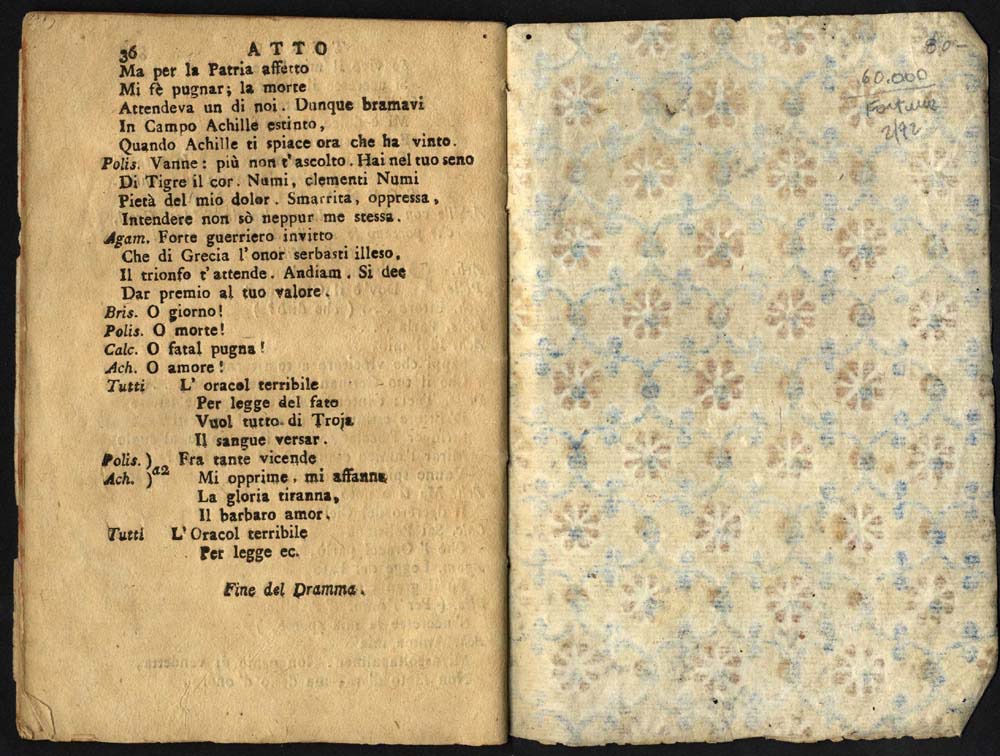 36 ATTO
Ma per la Patria affetto
Mi fè pugnar; la morte
Attendeva un di noi. Dunque bramavi
In Campo Achille estinto,
Quando Achille ti spiace ora che ha vinto.
Polis. Vanne: più non t'ascolto. Hai nel tuo seno
Di Tigre il cor. Numi, clementi Numi
Pietà del mio dolor. Smarrita, oppressa,
Intendere non sò neppur me stessa.
Agam. Forte guerriero invitto
Che di Grecia l'onor serbasti illeso,
Il trionfo t'attende. Andiam. Si dee
Dar premio al tuo valore.
Bris. O giorno!
Polis. O morte!
Calc. O fatal pugna!
Ach. O amore!
Tutti L' oracol terribile
Per legge del fato
Vuol tutto di Troja
Il sangue versar.
Polis. ) Fra tante vicende
Ach. ) a2 Mi opprime, mi affanna
La gloria tiranna,
Il barbaro amor.
Tutti L'Oracol terribile
Per legge ec.
Fine del Dramma.
80-
60.000
2/92